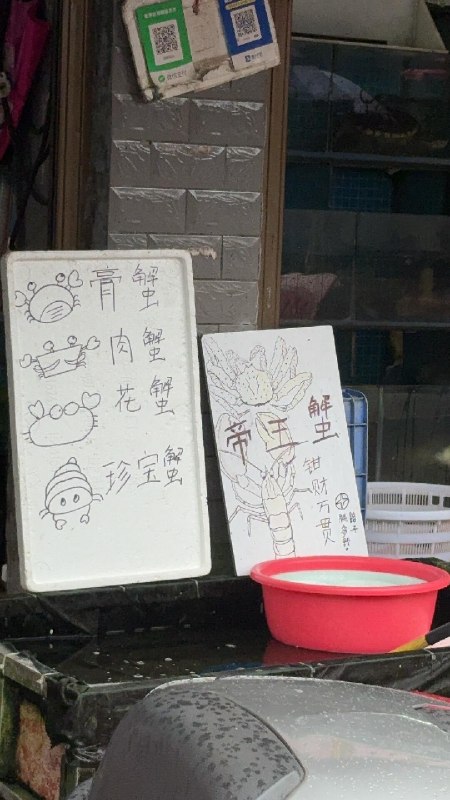 膏蟹
肉蟹
花蟹
珍宝蟹
帝王蟹
钳财万贯